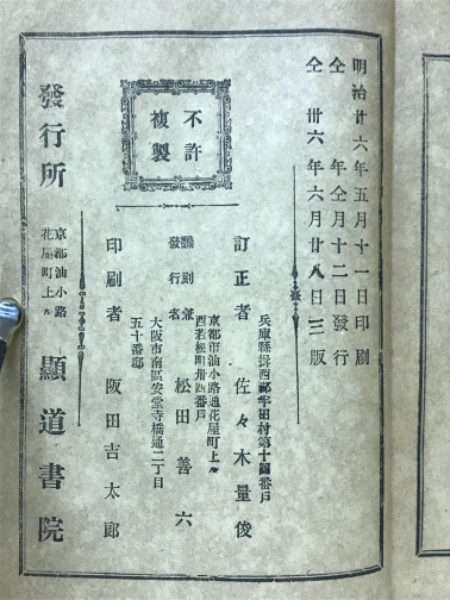 明治廿六年五月十一日印刷
仝 年仝月十二日發行
仝 卅六年六月廿八日三版
不許
複製
兵庫縣揖西郡半田村第十四番戸
訂正者 佐々木量俊
京都市油小路通花屋町上ル
西若松町卅四番戸
飜刻兼
發行者 松田善六
大阪市南區安堂寺橋通二丁目
五十番邸
印刷者 阪田吉太郎
發行所 京都油小路
花屋町上ル 顯道書院